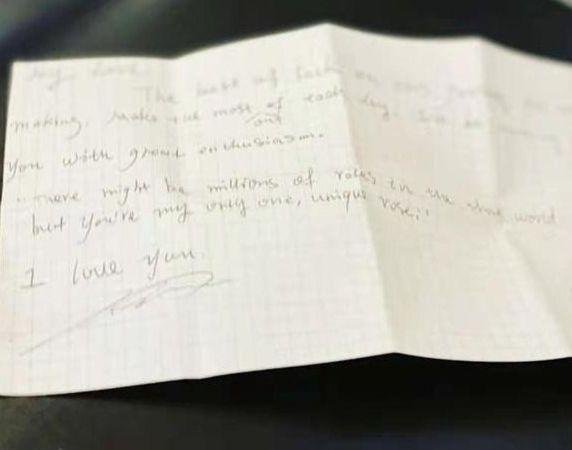 my love
The best of luck on
making. Make the most of each day.
out
you with great enthusiasm.
"There might be millions of roses in the whole world
but you're my only one, unique rose."
I love you.